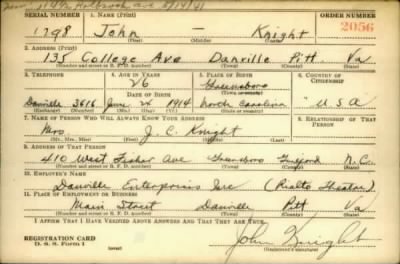 1142 Holbrook Ave 5/14/41
SERIAL NUMBER 1. NAME (Print) ORDER NUMBER
1798 John — Knight 2056
(First) (Middle) (Last)
2. ADDRESS (Print)
135 College Ave Danville Pitt. Va
(Number and street or R. F. D. number) (Town) (County) (State)
3. TELEPHONE 4. AGE IN YEARS 5. PLACE OF BIRTH 6. COUNTRY OF CITIZENSHIP
26 Greensboro
DATE OF BIRTH (Town or county)
Danville 3616 June 1914 North Carolina U S A
(Exchange) (Number) (Mo.) (Day) (Yr.) (State or country)
7. NAME OF PERSON WHO WILL ALWAYS KNOW YOUR ADDRESS 8. RELATIONSHIP OF THAT PERSON
Mrs J. C. Knight
(Mr., Mrs., Miss) (First) (Middle) (Last)
9. ADDRESS OF THAT PERSON
410 West Fisher Ave Greensboro Guilford N. C.
(Number and street or R. F. D. number) (Town) (County) (State)
10. EMPLOYER'S NAME
Danville Enterprises Inc (Rialto Theater)
11. PLACE OF EMPLOYMENT OR BUSINESS
Main Street Danville Pitt Va
(Number and street or R. F. D. number) (Town) (County) (State)
I AFFIRM THAT I HAVE VERIFIED ABOVE ANSWERS AND THAT THEY ARE TRUE.
REGISTRATION CARD
D. S. S. Form 1
John Knight
(Registrant's signature)